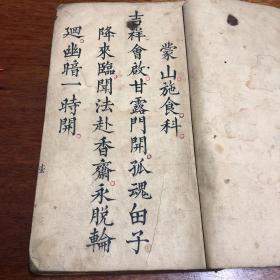 蒙山施食科
吉祥會啟甘露門開孤魂由子
降來臨聞法赴香齋永脫輪
迴幽暗一時開